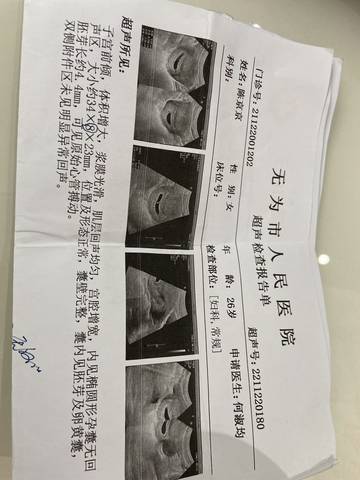 无为市人民医院
超声检查报告单
门诊号: 21122001202
超声号: 2211220180
姓名: 陈京京
性 别: 女
年 龄: 26岁
申请医生: 何淑均
科别:
床位号:
检查部位: [妇科,常规]
超声所见:
子宫前倾, 体积增大, 浆膜光滑, 肌层回声均匀, 宫腔增宽, 内见椭圆形孕囊无回
声区, 大小约34×18×23mm, 位置及形态正常, 囊壁完整, 囊内见胚芽及卵黄囊,
胚芽长约4.4mm, 可见原始心管搏动。
双侧附件区未见明显异常回声。